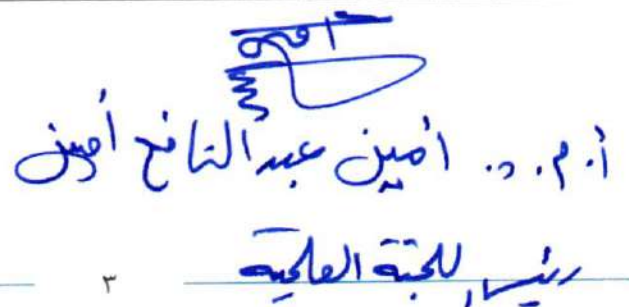 أ.م.د. أمين عبد النافع أمين
رئيس اللجنة العلمية
٣